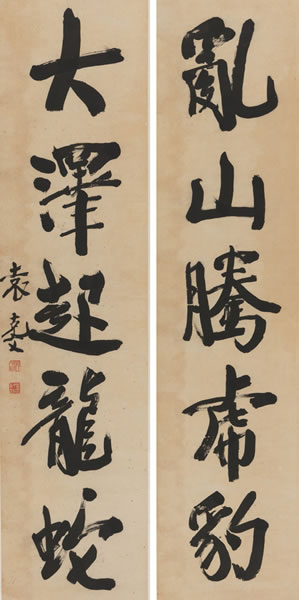 亂山騰虎豹
大澤起龍蛇
袁